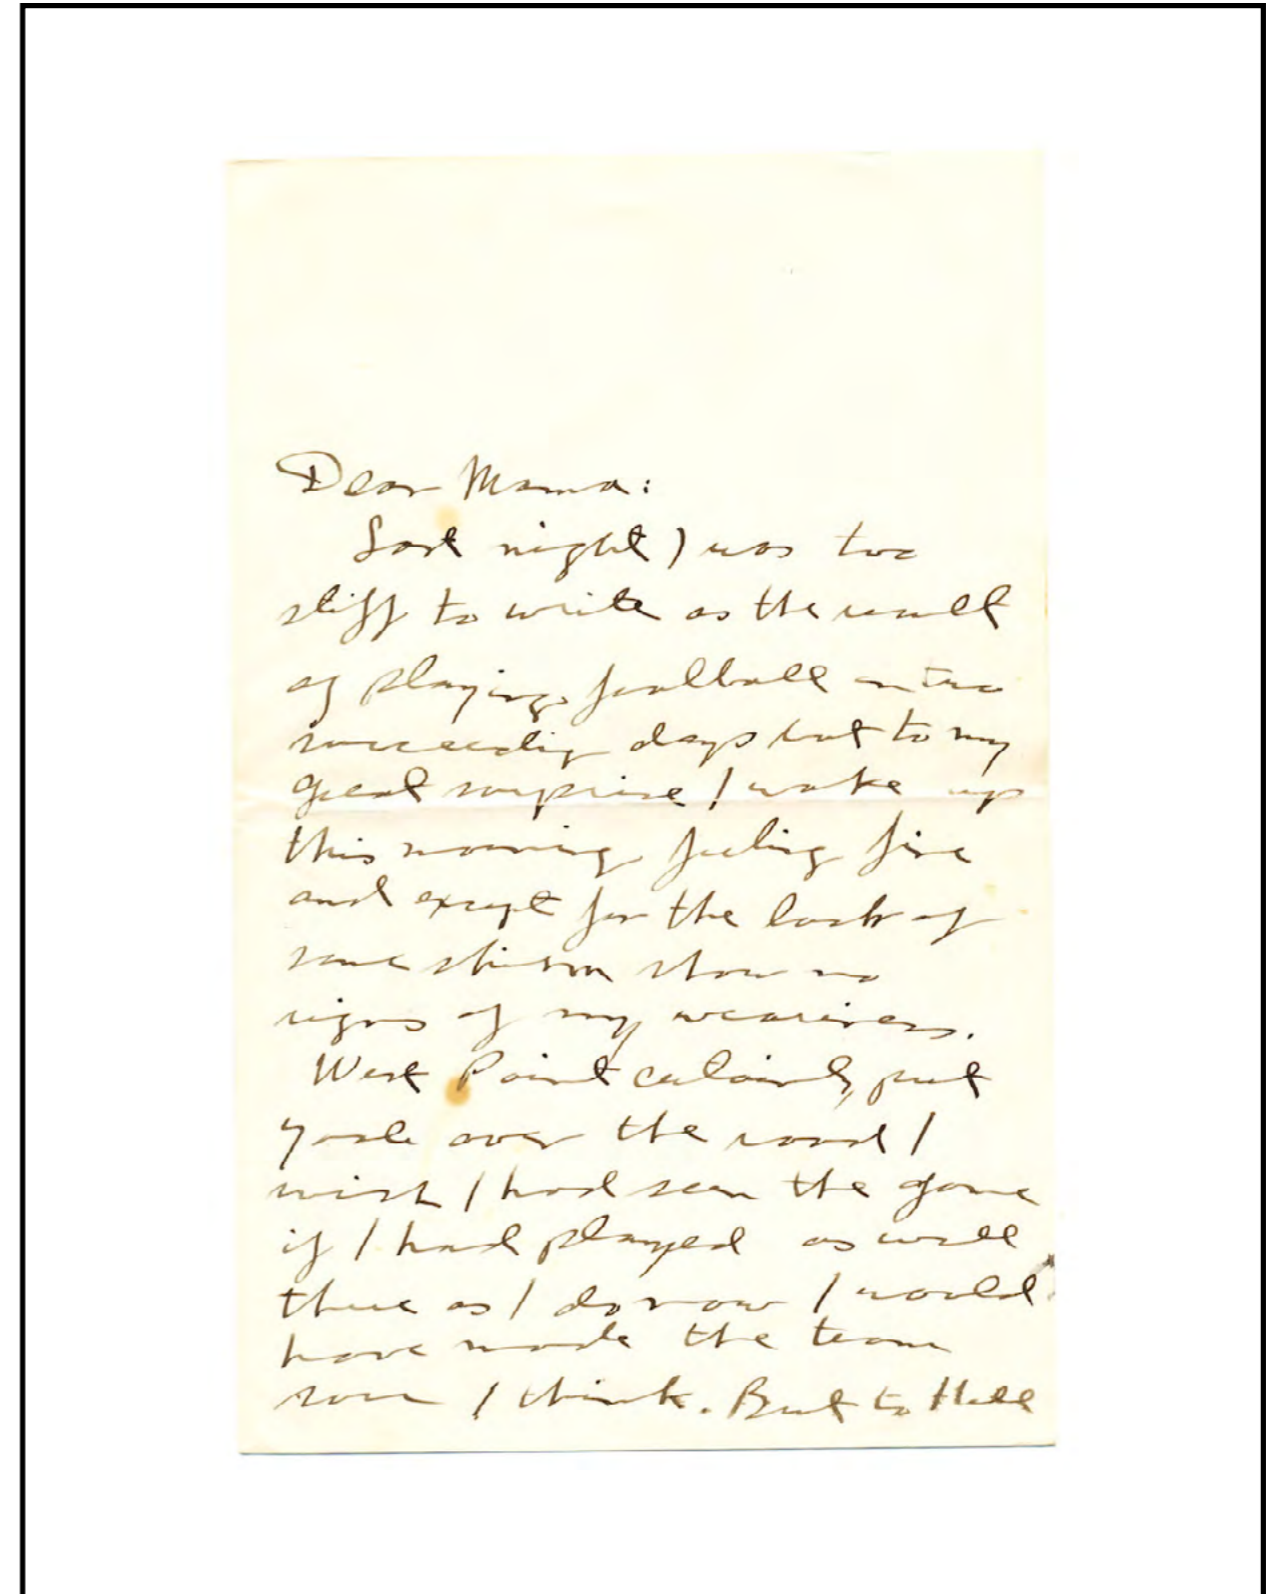 Dear Mama:
Last night I was too
stiff to write as the result
of playing football on two
succeeding days but to my
great surprise I woke up
this morning feeling fine
and except for the lack of
some skin show no
signs of my weariness.
West Point certainly put
Yale over the road I
wish I had seen the game
if I had played as well
there as I do now I would
have made the team
sure I think. But to Hell